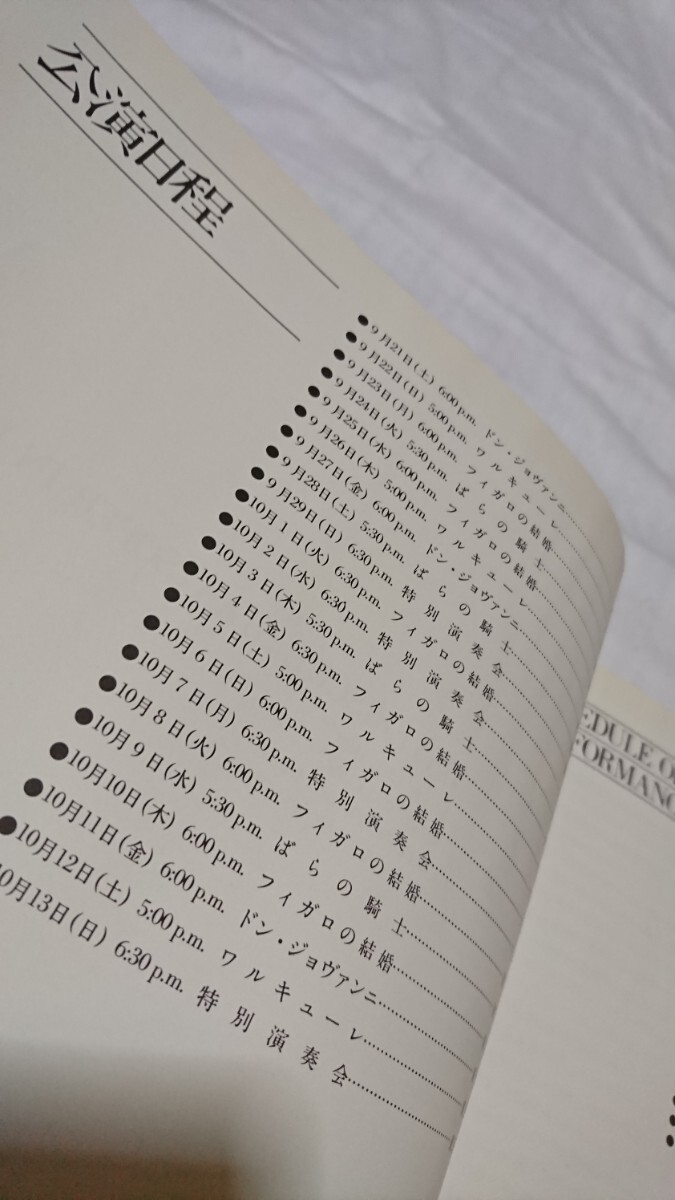 公演日程
●9月21日(土) 6:00p.m. ドン・ジョヴァンニ
●9月22日(日) 5:00p.m. ワルキューレ
●9月23日(月) 6:00p.m. フィガロの結婚
●9月24日(火) 5:30p.m. ばらの騎士
●9月25日(水) 6:00p.m. フィガロの結婚
●9月26日(木) 5:00p.m. ワルキューレ
●9月27日(金) 6:00p.m. ドン・ジョヴァンニ
●9月28日(土) 5:30p.m. ばらの騎士
●9月29日(日) 6:30p.m. 特別演奏会
●10月1日(火) 6:30p.m. フィガロの結婚
●10月2日(水) 6:30p.m. 特別演奏会
●10月3日(木) 5:30p.m. ばらの騎士
●10月4日(金) 6:30p.m. フィガロの結婚
●10月5日(土) 5:00p.m. ワルキューレ
●10月6日(日) 6:00p.m. フィガロの結婚
●10月7日(月) 6:30p.m. 特別演奏会
●10月8日(火) 6:00p.m. フィガロの結婚
●10月9日(水) 5:30p.m. ばらの騎士
●10月10日(木) 6:00p.m. フィガロの結婚
●10月11日(金) 6:00p.m. ドン・ジョヴァンニ
●10月12日(土) 5:00p.m. ワルキューレ
10月13日(日) 6:30p.m. 特別演奏会
EDULE O
FORMANC